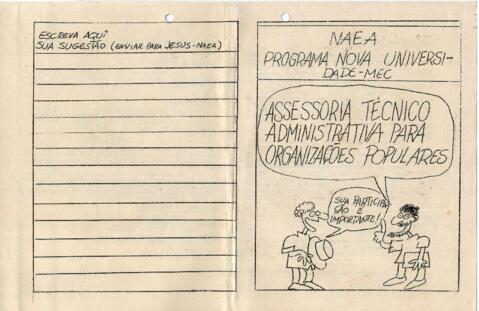 ESCREVA AQUI
SUA SUGESTÃO (ENVIAR PARA JESUS-NAEA)
NAEA
PROGRAMA NOVA UNIVERSI-
DADE-MEC
ASSESSORIA TÉCNICO
ADMINISTRATIVA PARA
ORGANIZAÇÕES POPULARES
SUA PARTICIPA-
ÇÃO É
IMPORTANTE!